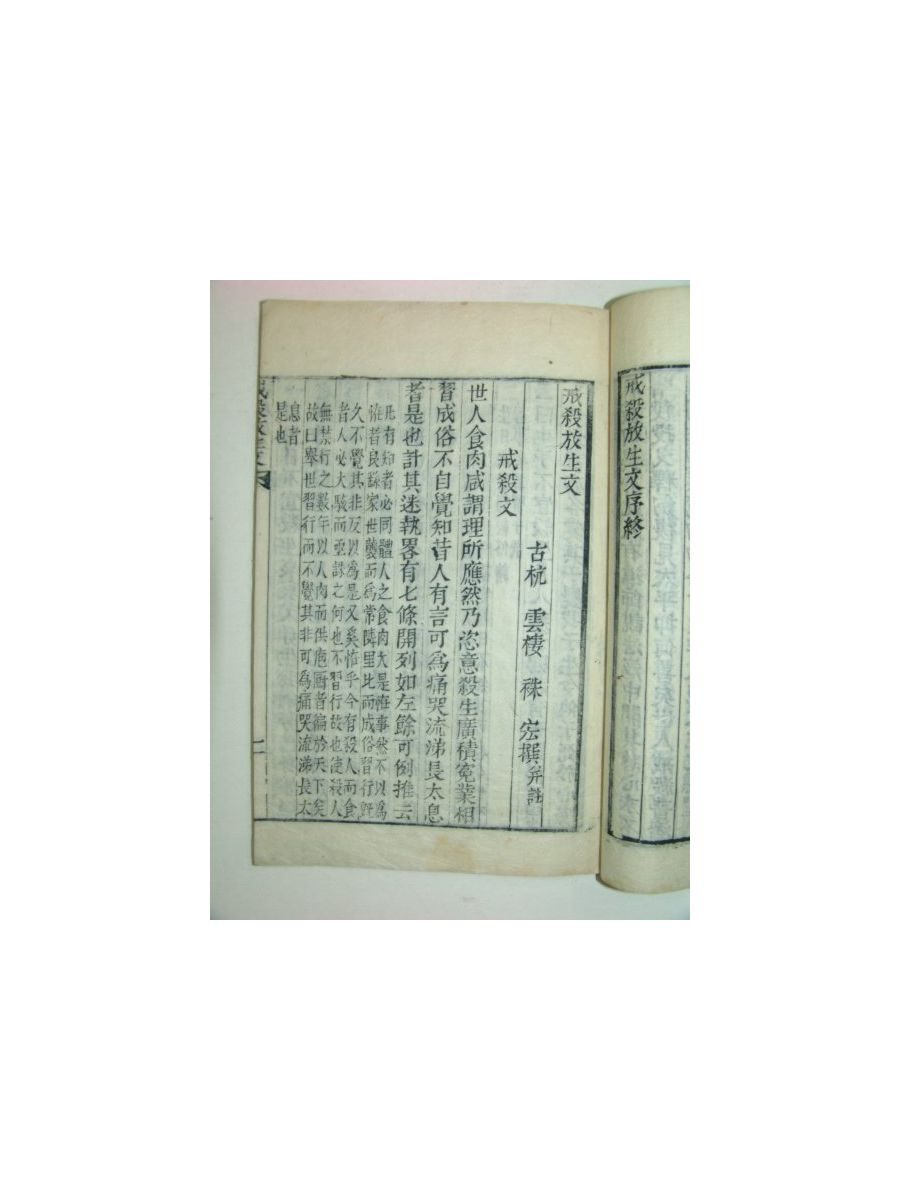 戒殺放生文序終
戒殺放生文
古杭 雲棲 祩 宏撰 并註
戒殺文
世人食肉咸謂理所應然乃恣意殺生廣積寃業相
習成俗不自覺知昔人有言可為痛哭流涕長太息
者是也計其迷執畧有七條開列如左餘可例推云
凡有知者必同體人之食肉大是恠事然不以為
恠者良繇家世襲而為常隣里比而成俗習行旣
久不覺其非反以為是又奚恠乎今有殺人而食
者人必大駭而亟誅之何也不習行故也使殺人
無禁行之數年以人肉而供庖厨者徧於天下矣
故曰舉世習行而不覺其非可為痛哭流涕長太
息者
是也
戒殺放生文
一